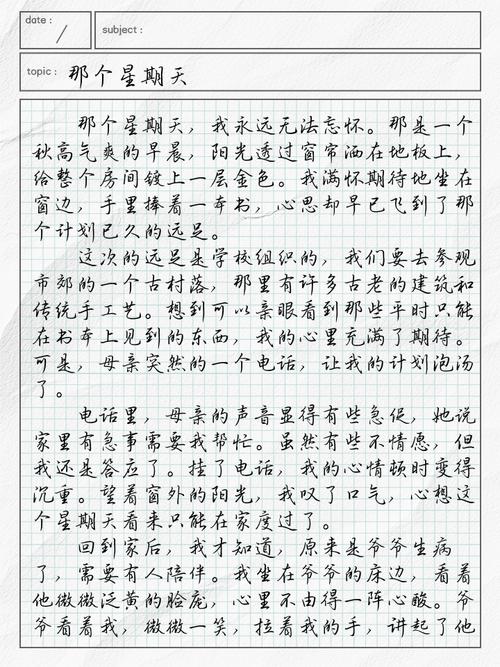 date :
/
subject :
topic : 那个星期天
那个星期天，我永远无法忘怀。那是一个
秋高气爽的早晨，阳光透过窗帘洒在地板上，
给整个房间镀上一层金色。我满怀期待地坐在
窗边，手里捧着一本书，心思却早已飞到了那
个计划已久的远足。
这次的远足是学校组织的，我们要去参观
市郊的一个古村落，那里有许多古老的建筑和
传统手工艺。想到可以亲眼看到那些平时只能
在书本上见到的东西，我的心里充满了期待。
可是，母亲突然的一个电话，让我的计划泡汤
了。
电话里，母亲的声音显得有些急促，她说
家里有急事需要我帮忙。虽然有些不情愿，但
我还是答应了。挂了电话，我的心情顿时变得
沉重。望着窗外的阳光，我叹了口气，心想这
个星期天看来只能在家度过了。
回到家后，我才知道，原来是爷爷生病
了，需要有人陪伴。我坐在爷爷的床边，看着
他微微泛黄的脸庞，心里不由得一阵心酸。爷
爷看着我，微微一笑，拉着我的手，讲起了他